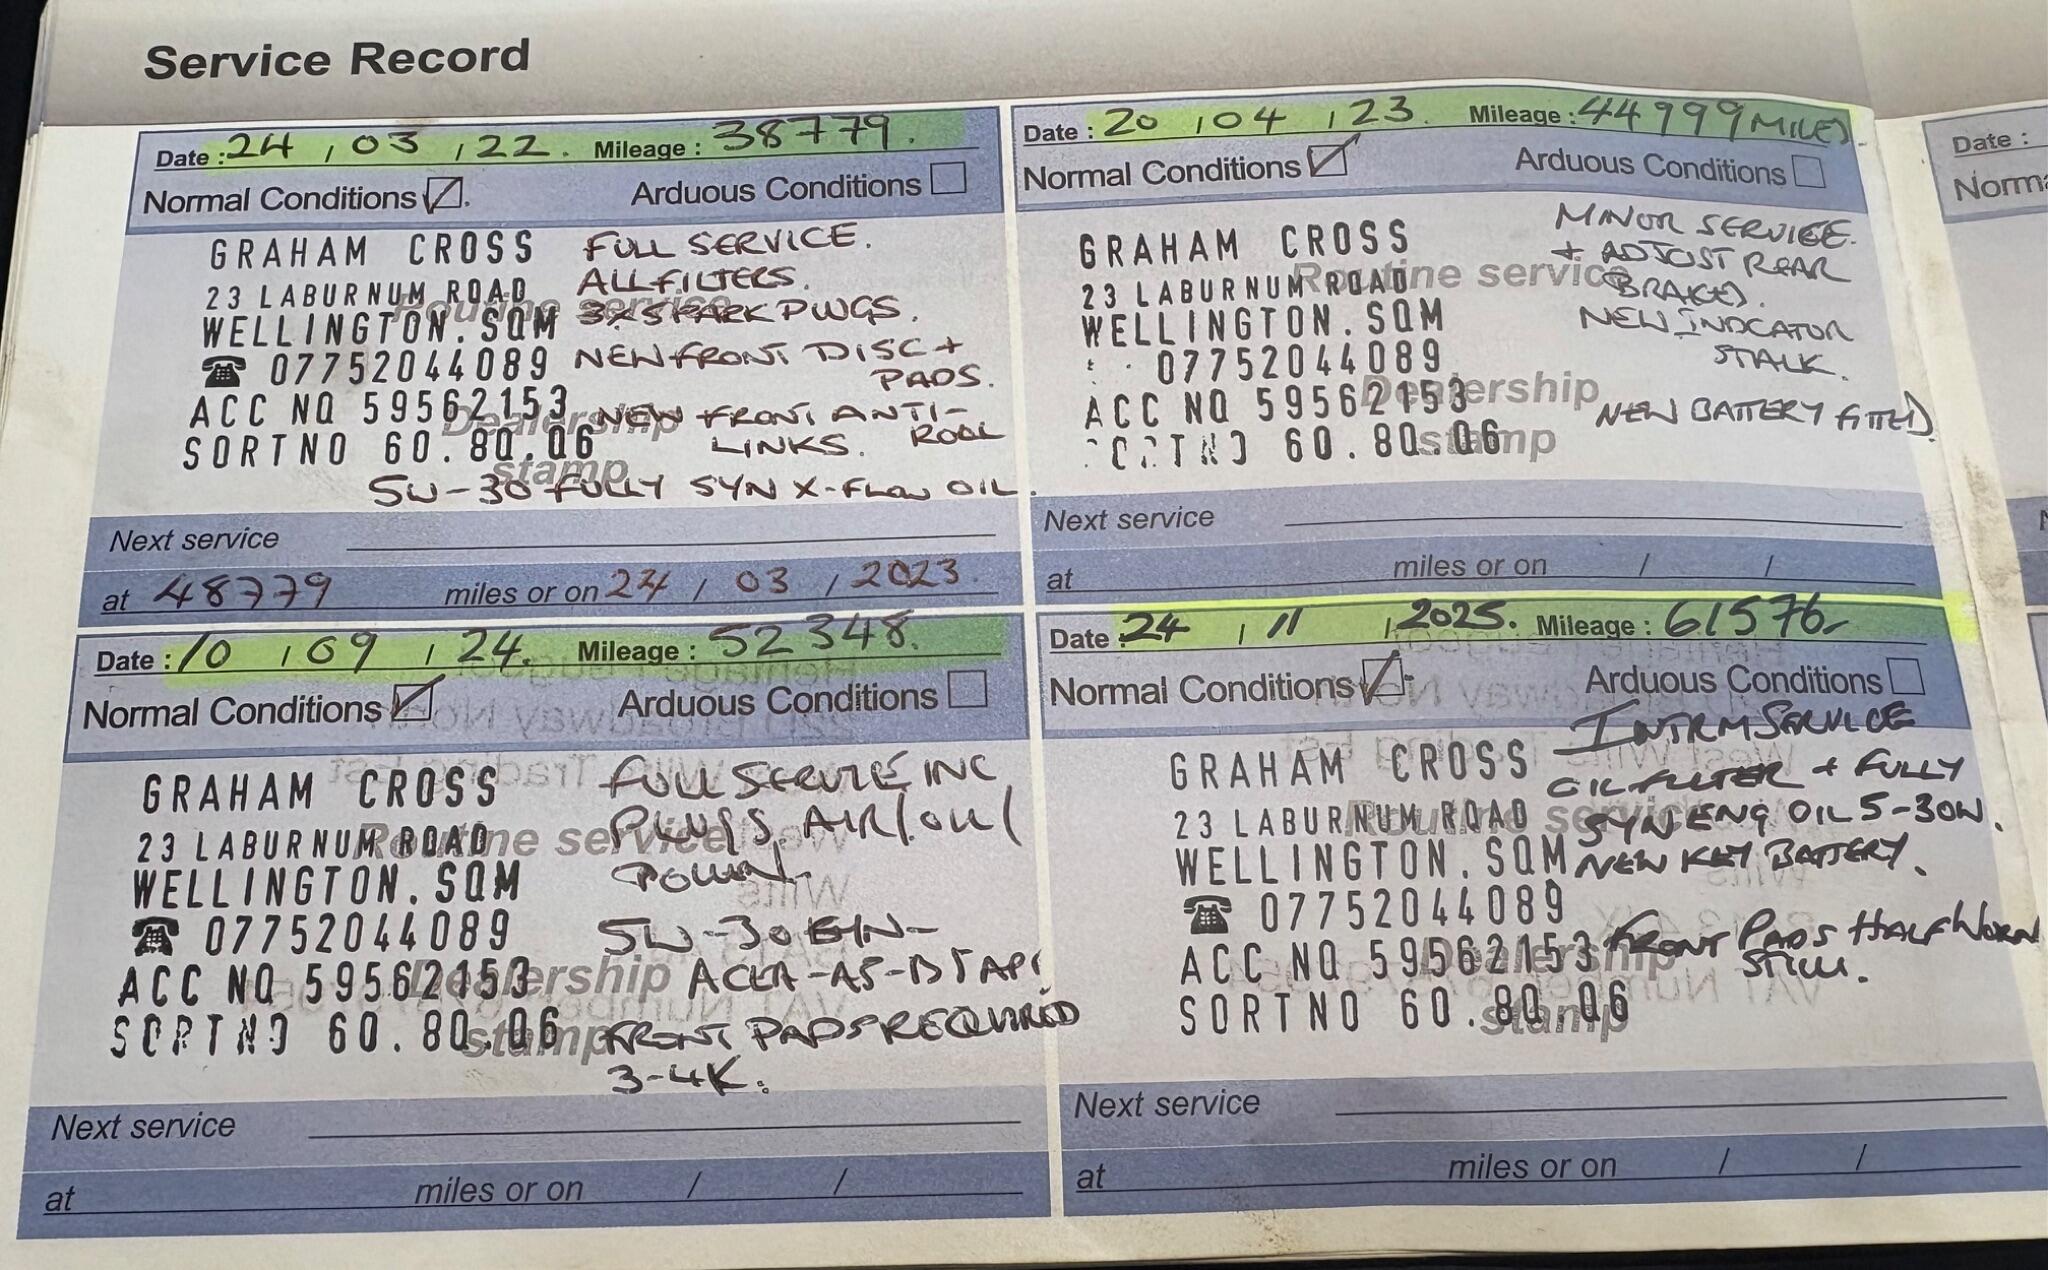 Service Record
Date : 24 / 03 / 22. Mileage : 38779.
Normal Conditions Arduous Conditions
GRAHAM CROSS
23 LABURNUM ROAD
WELLINGTON. SOM
☎ 07752044089
ACC NO 59562153
SORTNO 60.80.06
Routine service
Dealership
stamp
FULL SERVICE.
ALL FILTERS.
3X SPARK PLUGS.
NEW FRONT DISC +
PADS.
NEW FRONT ANTI-
ROOL
LINKS.
5W-30 FULLY SYN X-FLOW OIL.
Next service
at 48779 miles or on 24 / 03 / 2023.
Date : 20 / 04 / 23. Mileage : 44999 MILES
Normal Conditions Arduous Conditions
GRAHAM CROSS
23 LABURNUM ROAD
WELLINGTON. SOM
07752044089
ACC NO 59562153
SORTNO 60.80.06
Routine service
Dealership
stamp
MINOR SERVICE.
+ ADJUST REAR
BRAKES.
NEW INDCATOR
STALK.
NEW BATTERY FITTED
Next service
at miles or on / /
Date : 10 / 09 / 24. Mileage : 52348.
Normal Conditions Arduous Conditions
GRAHAM CROSS
23 LABURNUM ROAD
WELLINGTON. SOM
☎ 07752044089
ACC NO 59562153
SORTNO 60.80.06
Routine service
Dealership
stamp
FULL SERVICE INC
PLUGS AIR/OIL/
POLLEN
5W-30
FRONT PADS REQUIRED
3-4K.
Next service
at miles or on / /
Date : 24 / 11 / 2025. Mileage : 61576
Normal Conditions Arduous Conditions
GRAHAM CROSS
23 LABURNUM ROAD
WELLINGTON. SOM
☎ 07752044089
ACC NO 59562153
SORTNO 60.80.06
Routine service
Dealership
stamp
INTRM SERVICE
OIL FILTER + FULLY
SYN ENG OIL 5-30W.
NEW KEY BATTERY.
FRONT PADS HALF WORN
STILL.
Next service
at miles or on / /
Date :